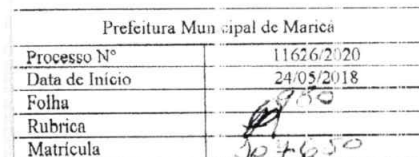 Prefeitura Municipal de Maricá
Processo Nº 11626/2020
Data de Início 24/05/2018
Folha
Rubrica
Matrícula